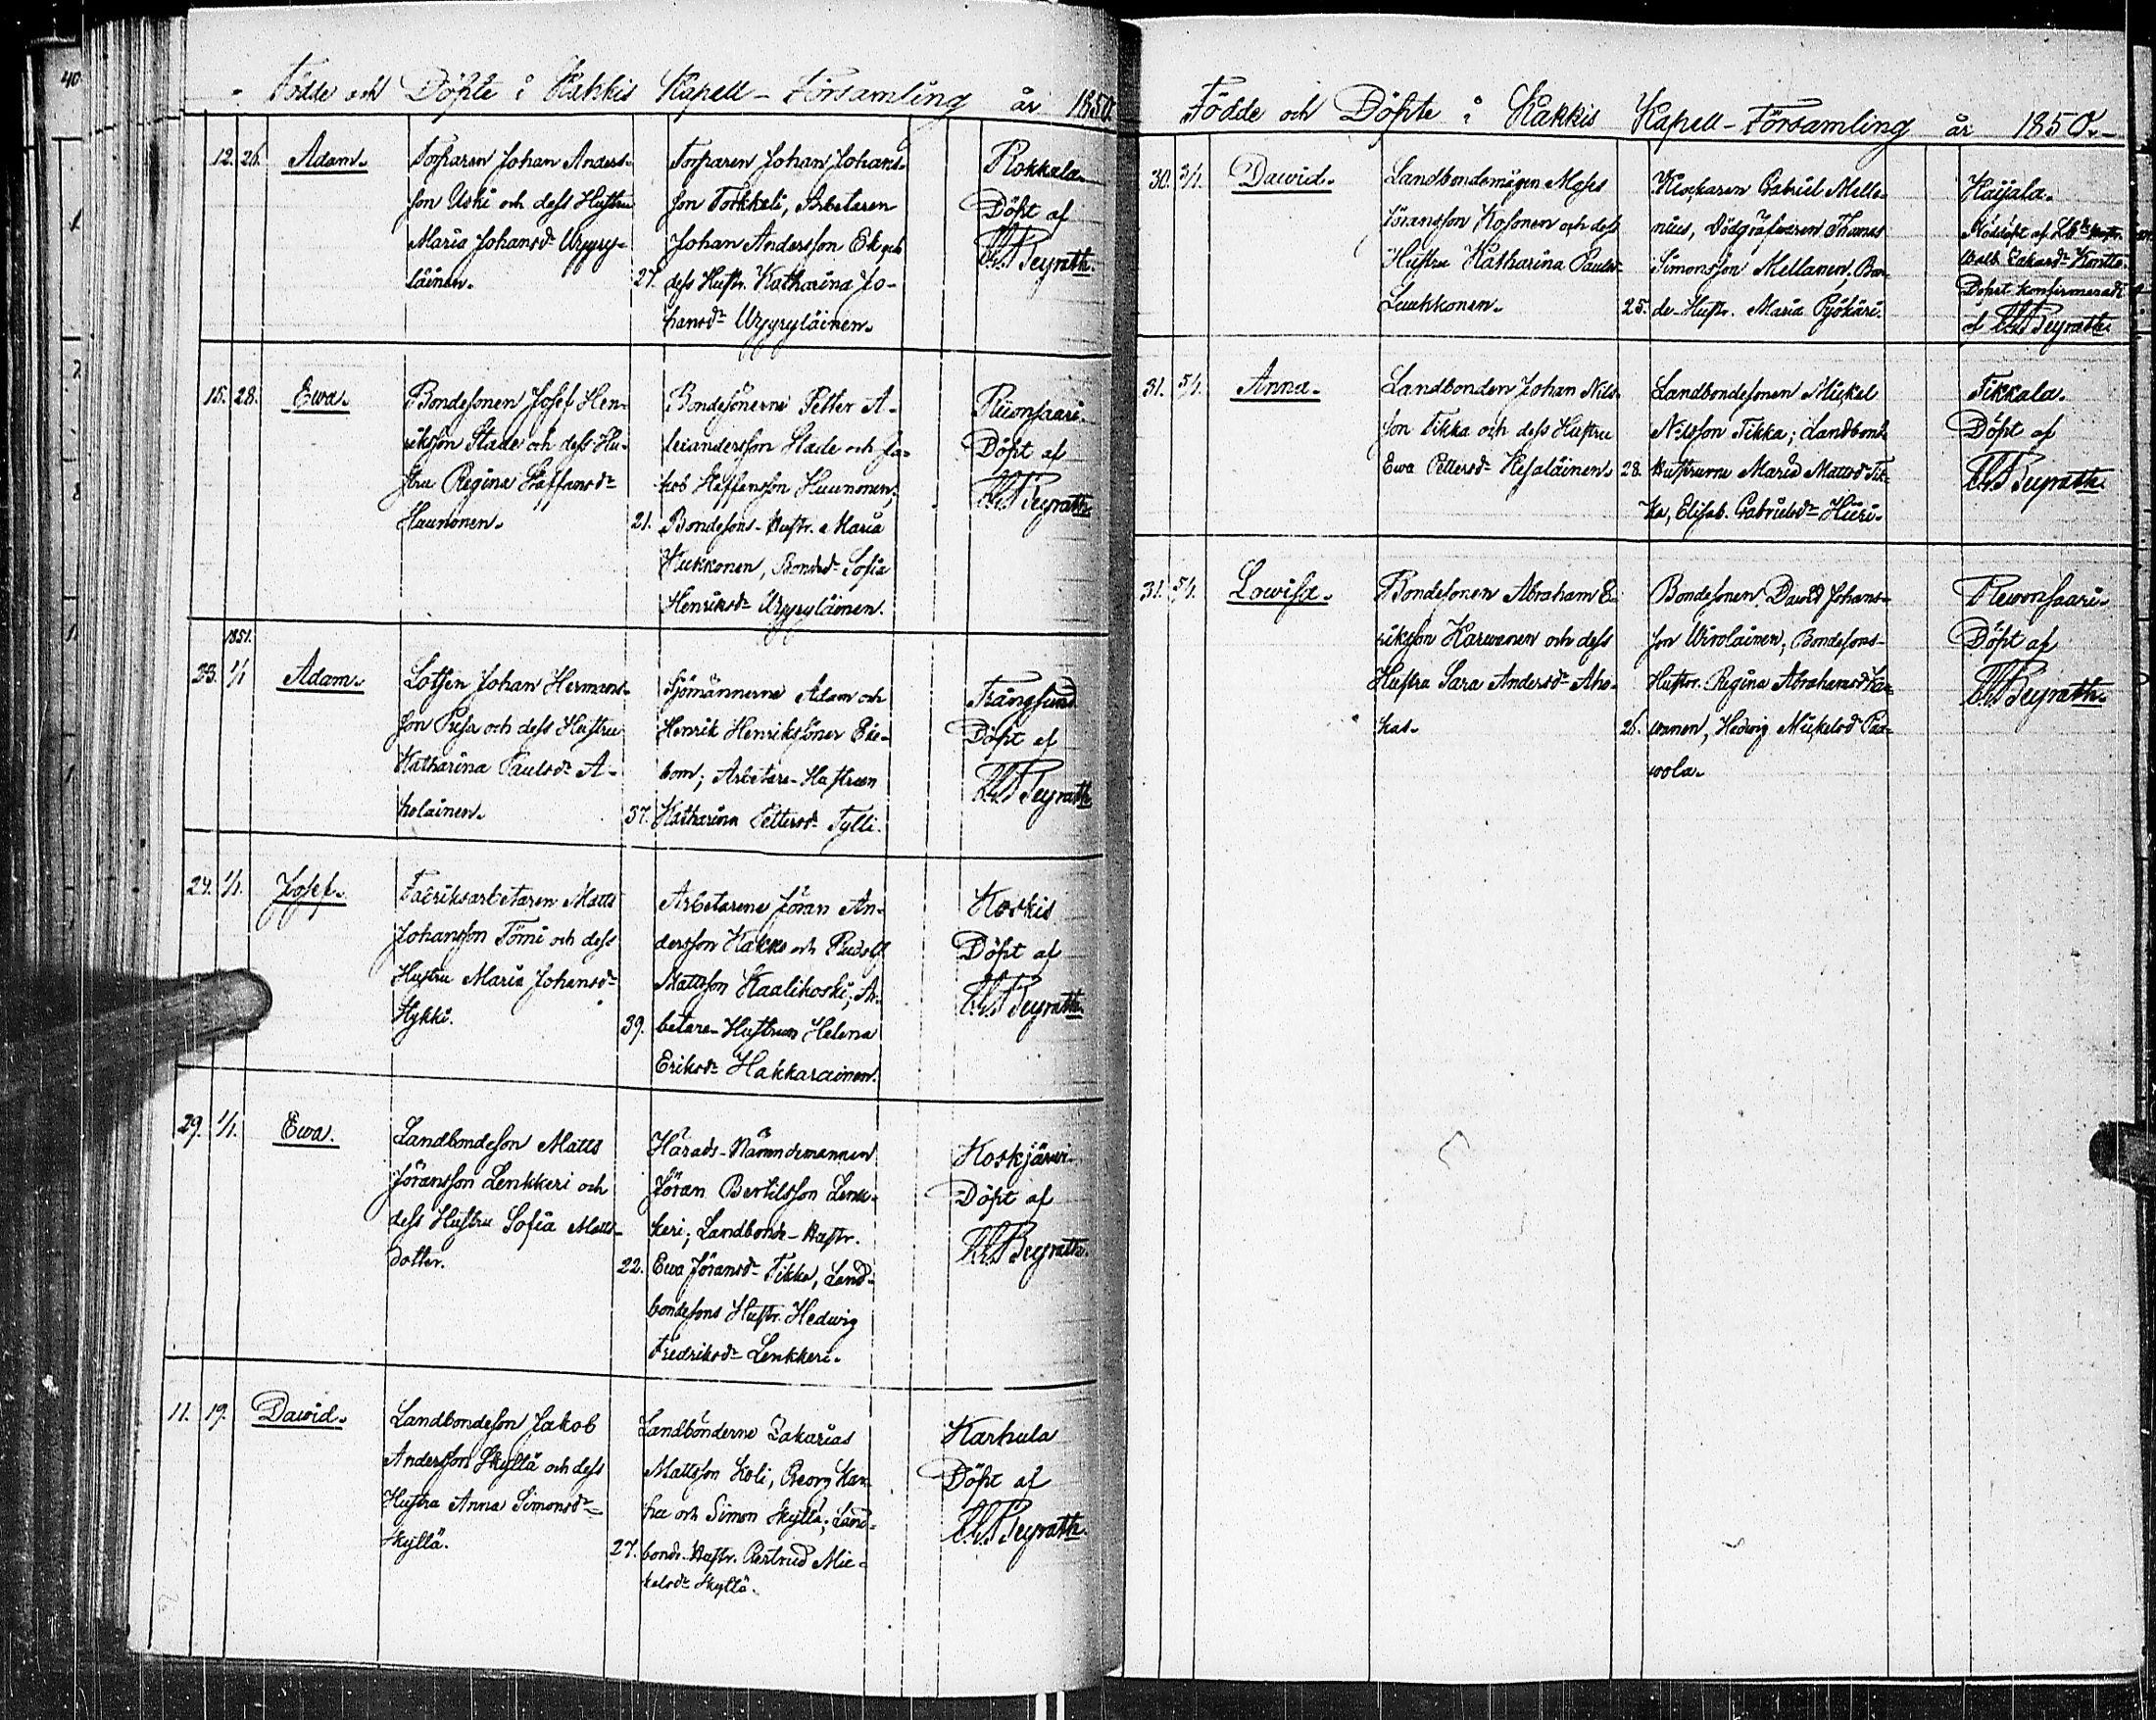 Födde och Döpte i Kakkis Kapell-Församling år 1850.
12. 26. Adam.
Torparen Johan Anders-
son Uski och dess Hustru
Maria Johansdr Uryyry-
läinen.
Torparen Johan Johans-
son Torkkeli, Arbetaren
Johan Andersson Ek och
27. dess Hustr. Katharina Jo-
hansdr Uryyryläinen.
Rokkala
Döpt af
Peyrath.
15. 28. Ewa.
Bondesonen Josef Hen-
riksson Stade och dess Hu-
stru Regina Staffansdr
Huunonen.
Bondesönerne Petter A-
lexandersson Stade och Ja-
kob Staffansson Huunonen;
21. Bondesons-Hustr. Maria
Kukkonen, Bondedr Sofia
Henriksdr Uryyryläinen.
Rewonsaari
Döpt af
Peyrath
1851.
23. 1/1 Adam.
Lotsen Johan Hermans-
son Pusa och dess Hustru
Katharina Paulsdr A-
holainen.
Sjömännerne Adam och
Henrik Henrikssöner Ek-
bom; Arbetare-Hustrun
37. Katharina Pettersdr Tylli.
Trångsund
Döpt af
Peyrath
24. 1/1. Josef.
Fabriksarbetaren Matts
Johansson Tömi och dess
Hustru Maria Johansdr
Hykki.
Arbetarene Jöran An-
dersson Kakko och Rudolf
Mattsson Kaalikoski; Ar-
39. betare-Hustrun Helena
Eriksdr Hakkarainen.
Koskis
Döpt af
Peyrath
29. 1/1. Ewa.
Landbondeson Matts
Jöransson Lenkkeri och
dess Hustru Sofia Matts-
dotter.
Härads-Nämndemannen
Jöran Bertilsson Lenk-
keri; Landbonde-Hustr.
22. Ewa Jöransdr Tikka, Land-
bondesons Hustr. Hedwig
Fredriksdr Lenkkeri.
Koskjärwi
Döpt af
Peyrath.
11. 19. Dawid.
Landbondeson Jakob
Andersson Skyllä och dess
Hustru Anna Simonsdr
Skyllä.
Landbönderne Zakarias
Mattsson Koli, Georg Kar-
hu och Simon Skyllä; Land-
27. bonde-Hustr. Gertrud Mic-
kelsdr Skyllä.
Karhula
Döpt af
Peyrath.
Födde och Döpte i Kakkis Kapell-Församling år 1850.
30. 3/1. Dawid.
Landbondemågen Moses
Göransson Kosonen och dess
Hustru Katharina Paulsdr
Luukkonen.
Klockaren Gabriel Melle-
nius, Dödgräfwaren Thomas
Simonsson Mellanen, Bon-
25. de-Hustr. Maria Pyökäri.
Kaijala.
Nöddöpt af
Walb. Zakardr Kontto
Dopet konfirmeradt
af Peyrath.
31. 5/1. Anna.
Landbonden Johan Nils-
son Tikka och dess Hustru
Ewa Pettersdr Kesäläinen.
Landbondesonen Mickel
Nilsson Tikka; Landbonde-
28. Hustrurne Maria Mattsdr Tik-
ka, Elisab. Gabrielsdr Hiiri.
Tikkala.
Döpt af
Peyrath.
31. 5/1. Lowisa.
Bondesonen Abraham E-
riksson Karwanen och dess
Hustru Sara Andersdr Aho-
kas.
Bondesonen Dawid Johans-
son Wirolainen, Bondesons-
Hustr. Regina Abrahamsdr Kar-
26. wanen, Hedwig Mickelsdr Paa-
wola.
Rewonsaari.
Döpt af
Peyrath.